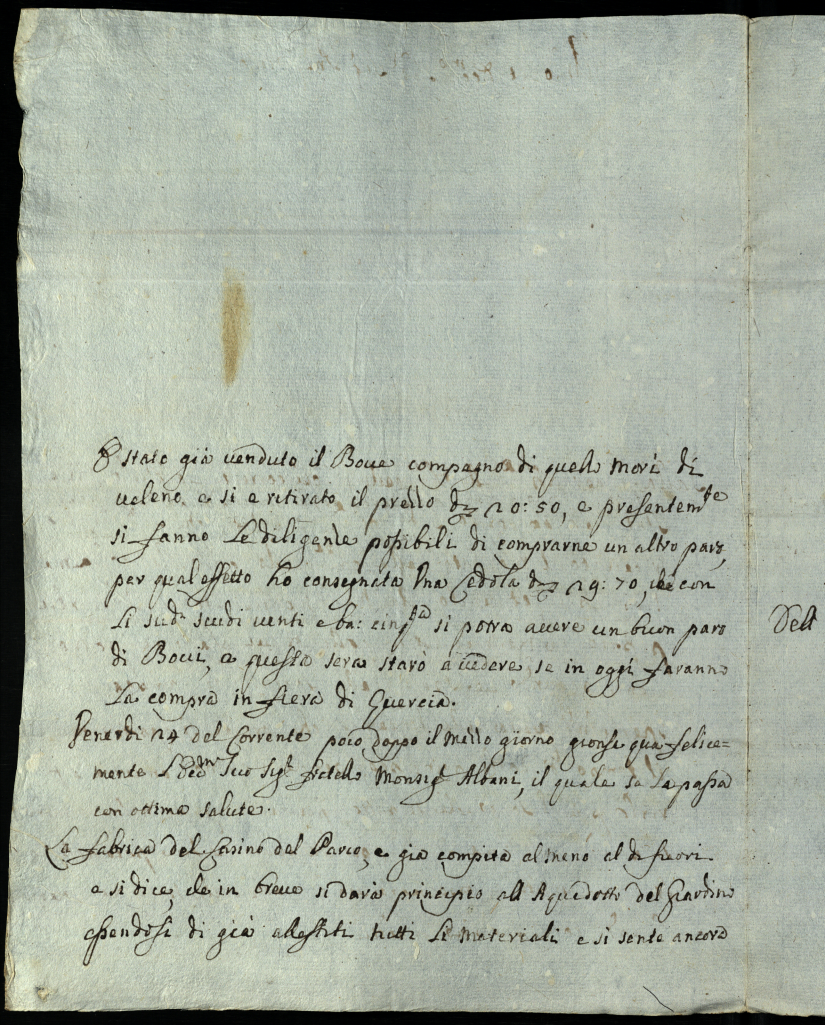 È stato già venduto il Boue compagno di quello morì di
ueleno e si e ritirato il prezzo di 20: 50, e presentem.te
si fanno Le diligenze possibili di comprarne un altro paro,
per qual effetto ho consegnata Una Cedola di 29: 70, che con
Li sud.i scudi uenti e ba: cinq.ta si potra auere un buon paro
di Boui, e questa sera starò a uedere se in oggi faranno
La compra in fiera di Quercia.
Venerdi 24 del Corrente poco doppo il mezzo giorno gionse quà felice=
mente L'Ecc.mo Suo Sig.r fratello Monsig.r Albani, il quale se La passa
con ottima salute.
La fabrica del Casino del Parco, e già compita al meno al di fuori
e si dice, che in breue si darà principio all Aquedotto del Giardino
essendosi di già allestiti tutti Li materiali e si sente ancora
Dell